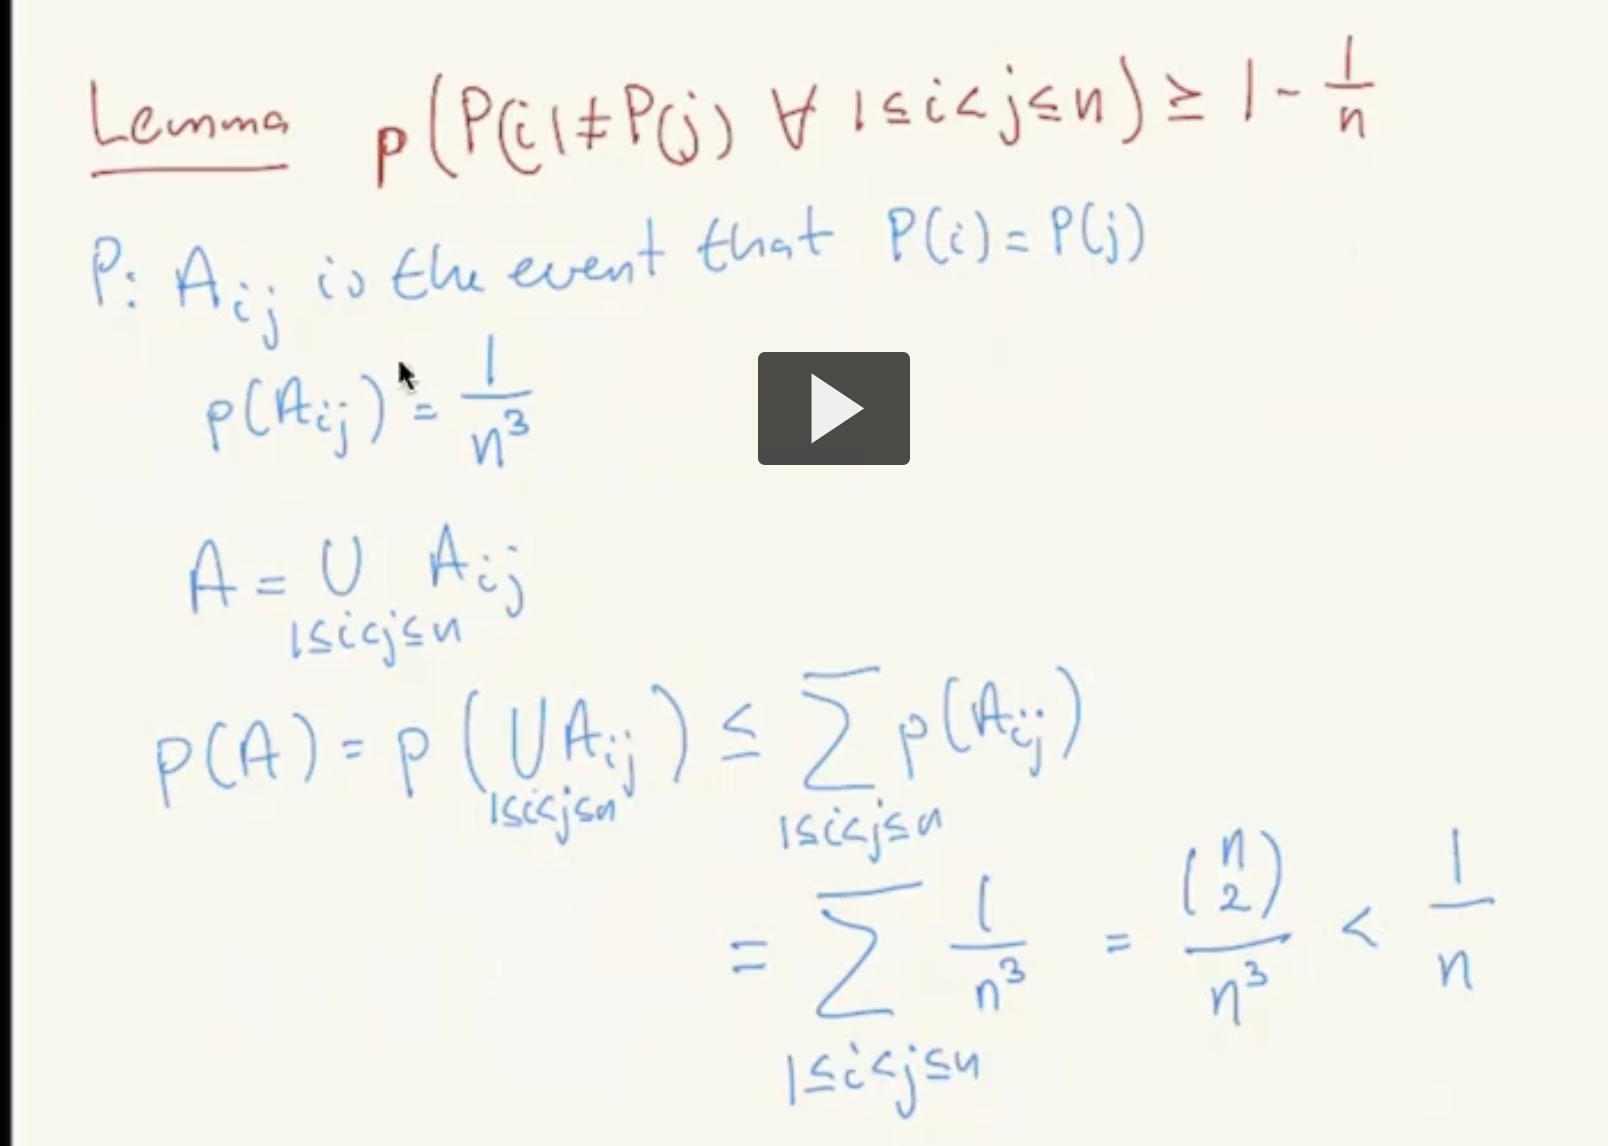 Lemma p(P(i)≠P(j) ∀ 1≤i<j≤n) ≥ 1 - 1/n
P: A_ij is the event that P(i) = P(j)
p(A_ij) = 1/n³
A = ∪ A_ij
1≤i<j≤n
p(A) = p(∪A_ij) ≤ ∑ p(A_ij)
1≤i<j≤n 1≤i<j≤n
= ∑ 1/n³ = (n 2)/n³ < 1/n
1≤i<j≤n